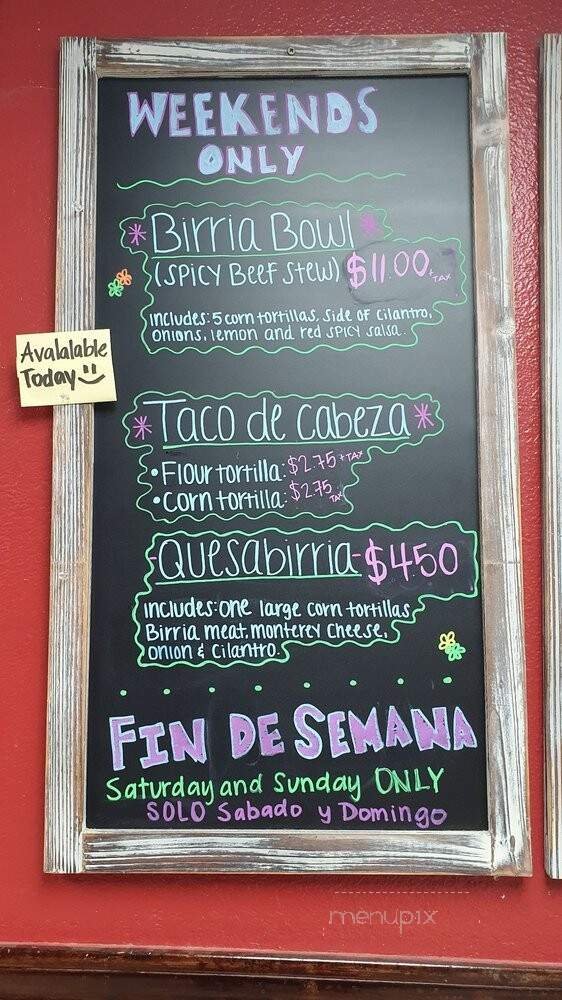 WEEKENDS
ONLY
Birria Bowl
(SPICY Beef Stew) $11.00 +TAX
includes: 5 corn tortillas, side of cilantro,
onions, lemon and red SPICY salsa.
Avalalable
Today
Taco de cabeza
• Flour tortilla: $2.75 +TAX
• Corn tortilla: $2.75 TAX
Quesabirria - $4.50
includes: one large corn tortillas,
Birria meat, monterey cheese,
onion & Cilantro.
FIN DE SEMANA
Saturday and Sunday ONLY
SOLO Sabado y Domingo
menupix